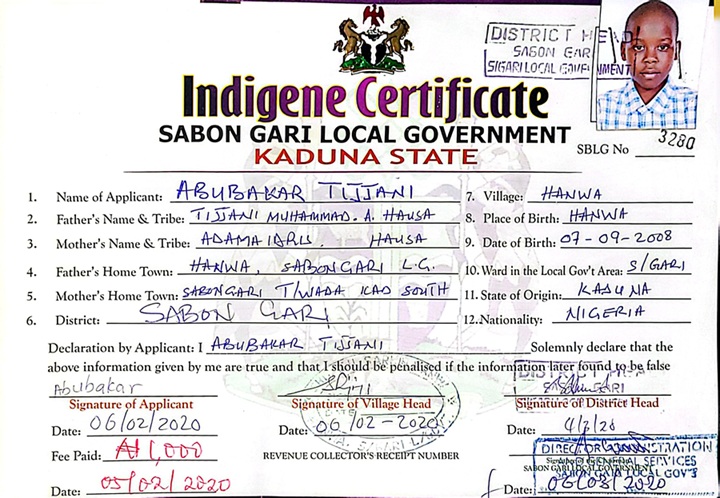 DISTRICT HEAD
SABON GARI
S/GARI LOCAL GOVERNMENT
Indigene Certificate
SABON GARI LOCAL GOVERNMENT
KADUNA STATE
SBLG No 3280
1. Name of Applicant: ABUBAKAR TIJJANI
2. Father's Name & Tribe: TIJJANI MUHAMMAD. A. HAUSA
3. Mother's Name & Tribe: ADAMA IDRIS. HAUSA
4. Father's Home Town: HANWA, SABON GARI L.G.
5. Mother's Home Town: SABON GARI T/WADA KAD SOUTH
6. District: SABON GARI
7. Village: HANWA
8. Place of Birth: HANWA
9. Date of Birth: 07-09-2008
10. Ward in the Local Gov't Area: S/GARI
11. State of Origin: KADUNA
12. Nationality: NIGERIA
Declaration by Applicant: I ABUBAKAR TIJJANI Solemnly declare that the
above information given by me are true and that I should be penalised if the information later found to be false
Abubakar
Signature of Applicant
Date: 06/02/2020
Fee Paid: ₦1,000
Date: 05/02/2020
Signature of Village Head
Date: 06/02-2020
REVENUE COLLECTOR'S RECEIPT NUMBER
Signature of District Head
Date:
SABON GARI LOCAL GOVERNMENT
Date: 06/03/2020